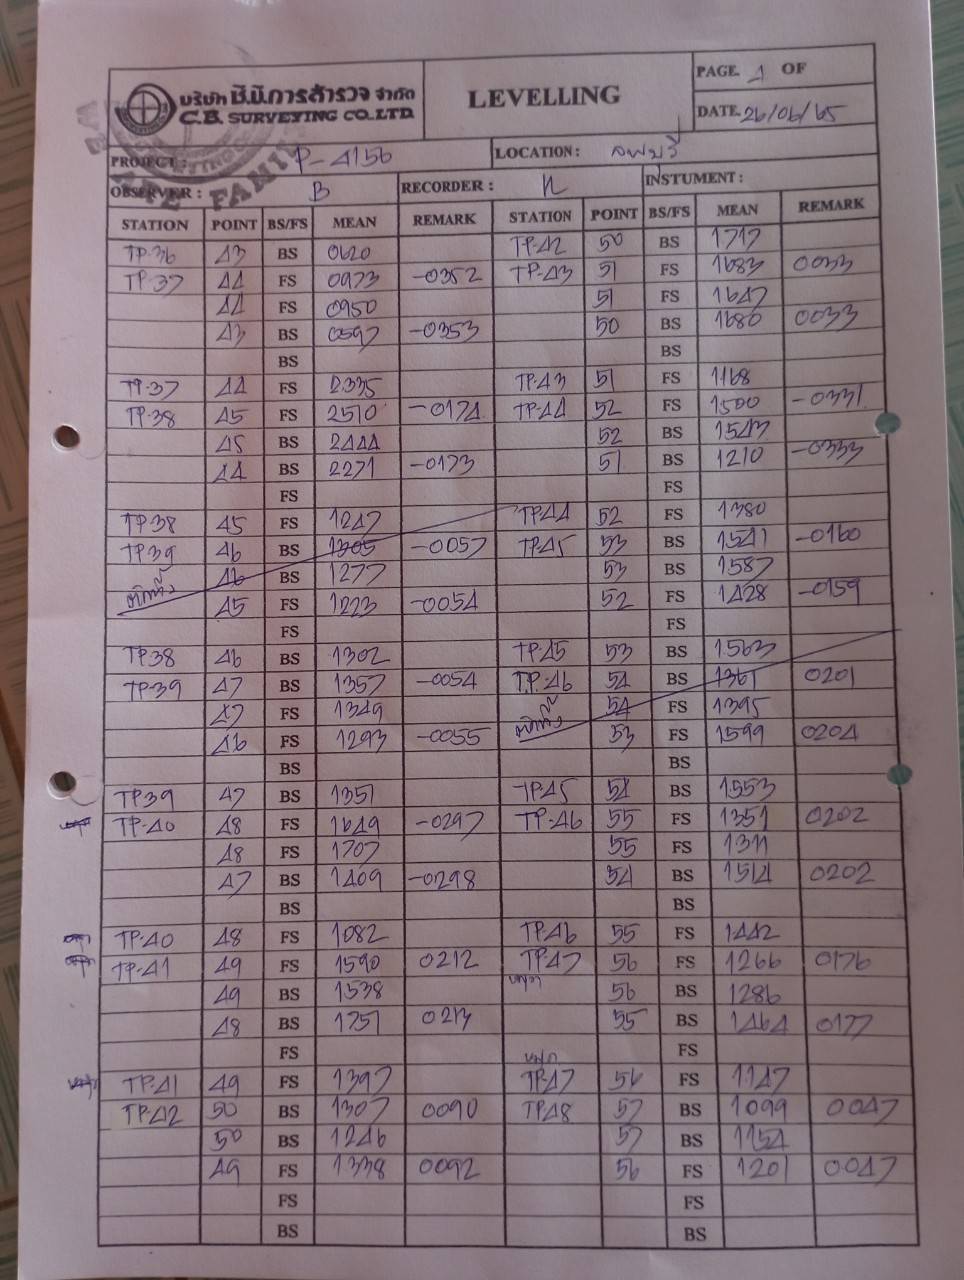 บริษัท ซี.บี.การสำรวจ จำกัด
C.B. SURVEYING CO.,LTD
LEVELLING
PAGE. 1 OF
DATE. 26/06/65
PROJECT : P-4156
LOCATION : ลพบุรี
OBSERVER : B
RECORDER : N
INSTUMENT :
STATION POINT BS/FS MEAN REMARK STATION POINT BS/FS MEAN REMARK
TP.36 43 BS 0620 TP.42 50 BS 1717
TP.37 44 FS 0973 -0352 TP.43 51 FS 1683 0033
44 FS 0950 51 FS 1647
43 BS 0597 -0353 50 BS 1680 0033
BS BS
TP.37 44 FS 2335 TP.43 51 FS 1168
TP.38 45 FS 2510 -0174 TP.44 52 FS 1500 -0331
45 BS 2444 52 BS 1543
44 BS 2271 -0173 51 BS 1210 -0333
FS FS
TP.38 45 FS 1247 TP.44 52 FS 1380
TP.39 46 BS 1305 -0057 TP.45 53 BS 1541 -0160
46 BS 1277 53 BS 1587
45 FS 1223 -0054 52 FS 1428 -0159
FS FS
TP.38 46 BS 1302 TP.45 53 BS 1563
TP.39 47 BS 1357 -0054 TP.46 54 BS 1361 0201
47 FS 1349 54 FS 1395
46 FS 1293 -0055 53 FS 1599 0204
BS BS
TP.39 47 BS 1351 TP.45 54 BS 1553
TP.40 48 FS 1649 -0297 TP.46 55 FS 1351 0202
48 FS 1707 55 FS 1311
47 BS 1409 -0298 54 BS 1514 0202
BS BS
TP.40 48 FS 1082 TP.46 55 FS 1442
TP.41 49 FS 1590 0212 TP.47 56 FS 1266 0176
49 BS 1538 56 BS 1286
48 BS 1751 0213 55 BS 1464 0177
FS FS
TP.41 49 FS 1397 TP.47 56 FS 1147
TP.42 50 BS 1307 0090 TP.48 57 BS 1099 0047
50 BS 1246 57 BS 1154
49 FS 1338 0092 56 FS 1201 0047
FS FS
BS BS